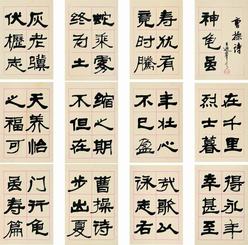 书操诗
神龟虽
寿犹有
竟时腾
蛇乘雾
终为土
灰老骥
伏枥志
在千里
烈士暮
年壮心
不已盈
缩之期
不但在
天养怡
之福可
得永年
幸甚至
哉歌以
咏志
曹操诗
步出夏
门行龟
虽寿篇